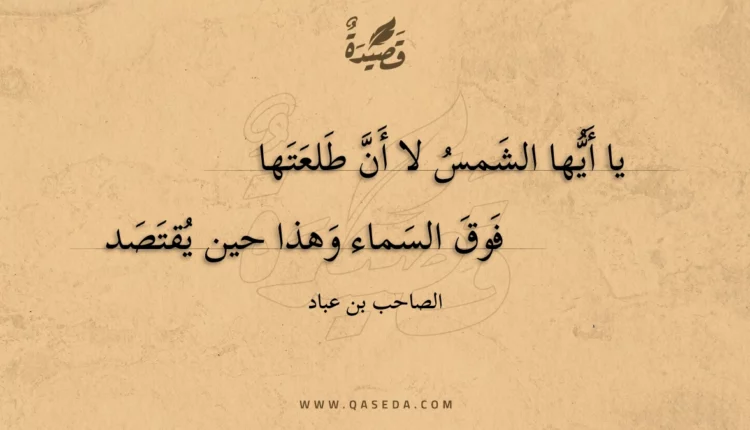 قَصِيْدَةٌ
يا أَيُّها الشَمسُ لا أَنَّ طَلعَتَها
فَوقَ السَماء وَهذا حين يُقتَصَد
الصاحب بن عباد
WWW.QASEDA.COM